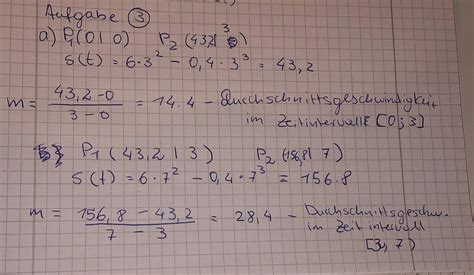 Aufgabe ③
a) P₁(0|0) P₂(43,2| 3)
s(t) = 6·3² − 0,4·3³ = 43,2
m = 43,2−0 / 3−0 = 14.4 – Durchschnittsgeschwindigkeit
im Zeitintervall [0;3]
P₁(43,2|3) P₂(156,8|7)
s(t) = 6·7² − 0,4·7³ = 156.8
m = 156,8 − 43,2 / 7 − 3 = 28,4 – Durchschnittsgeschw.
im Zeitintervall
[3,7)